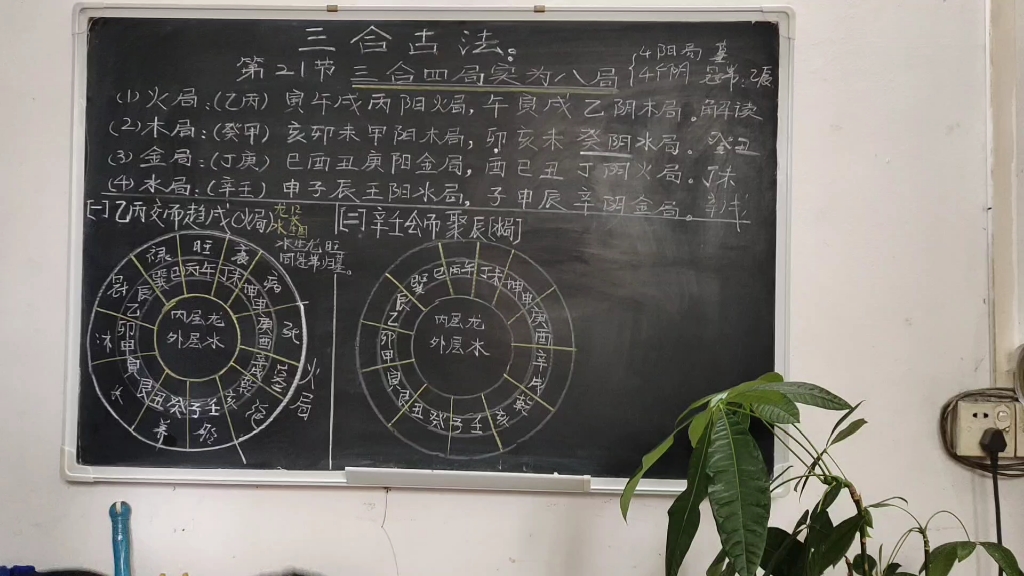 三合古法:
第21节 三合四局实为八局
4阳局 墓
4阴
(1) 火局:(乙丙) 寅午戌丙阳火局, 午寅戌乙阴木局。解读
(2) 木局:(癸甲) 亥卯未甲阳木局, 卯亥未癸阴水局。癸丑
(3) 金局:(丁庚) 巳酉丑庚阳金局, 酉巳丑丁阴火局。丁未
(4) 水局:(辛壬) 申子辰壬阳水局, 子申辰辛阴金局。
[一] 乙丙交而趋戌(火局)
水生龙旺
同是第归墓。
[二] 辛壬会而聚辰[水局]
禄 旺 衰 病 死
巽 巳 丙 午 丁 未 坤 申 庚 酉 辛
辰 乙 卯 甲 寅 艮 丑 癸 子 壬 亥
沐 养
内层龙
外层水
火局
巽 巳 丙 午 丁 未 坤 申 庚 酉 辛
辰 乙 卯 甲 寅 艮 丑 癸 子 壬 亥
内层龙
外层水